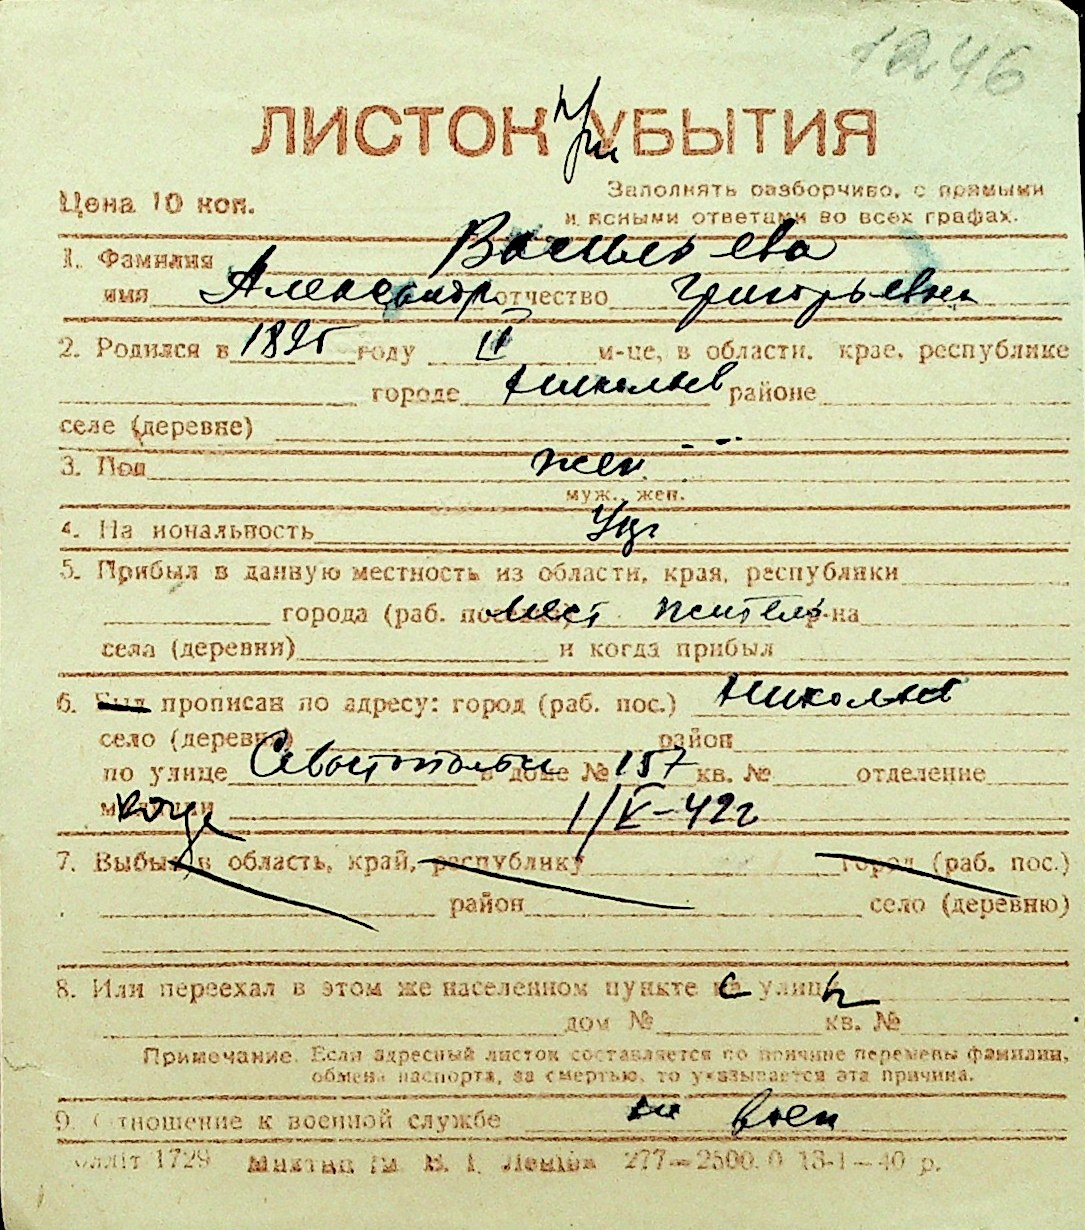 1246
ЛИСТОК при УБЫТИЯ
Цена 10 коп.
Заполнять разборчиво, с прямыми
и ясными ответами во всех графах.
1. Фамилия Васильева
имя Александр отчество Григорьевна
2. Родился в 1895 году II м-це, в области, крае, республике
городе Николаев районе
селе (деревне)
3. Пол жен.
муж., жен.
4. На иональность
5. Прибыл в данную местность из области, края, республики
города (раб. поселка) мест житель р-на
села (деревни) и когда прибыл
6. Был прописан по адресу: город (раб. пос.) Николаев
село (деревня) район
по улице Севастопольск в доме № 157 кв. № отделение
милиции когда 1/V-42г
7. Выбыл в область, край, республику город (раб. пос.)
район село (деревню)
8. Или переехал в этом же населенном пункте с улицы
дом № кв. №
Примечание. Если адресный листок составляется по причине перемены фамилии,
обмена паспорта, за смертью, то указывается эта причина.
9. Отношение к военной службе не воен
1729 277—2500.0 13-1—40 р.